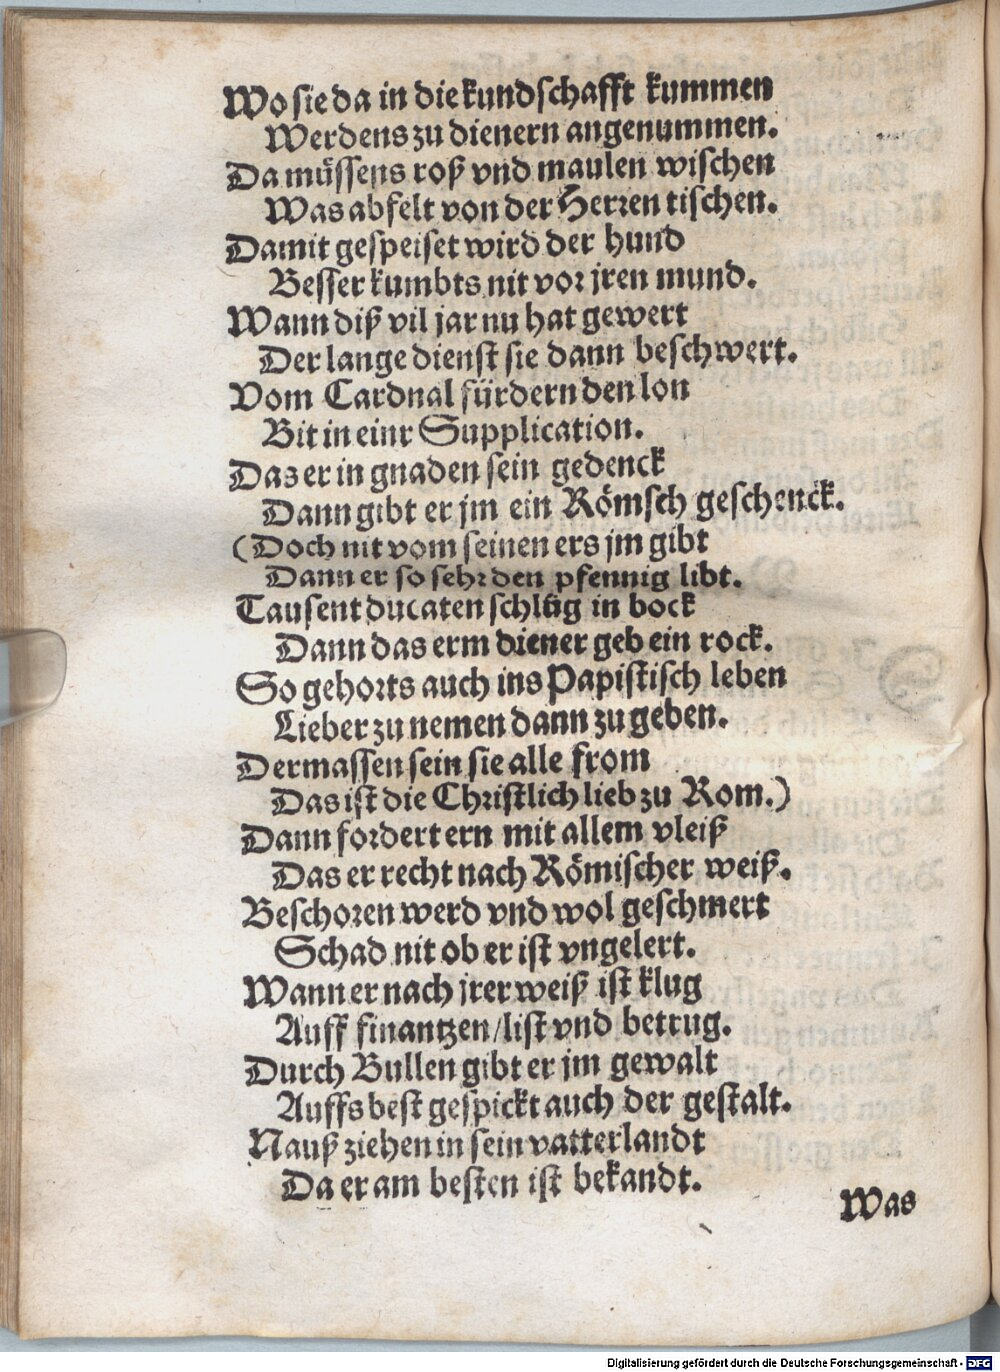 Wo sie da in die kundschafft kummen
Werdens zu dienern angenummen.
Da müssens roß vnd maulen wischen
Was abfelt von der Herren tischen.
Damit gespeiset wird der hund
Besser kumbts nit vor jren mund.
Wann diß vil jar nu hat gewert
Der lange dienst sie dann beschwert.
Vom Cardnal fürdern den lon
Bit in einr Supplication.
Das er in gnaden sein gedenck
Dann gibt er jm ein Römsch geschenck.
(Doch nit vom seinen ers jm gibt
Dann er so sehr den pfennig libt.
Tausent ducaten schlüg in bock
Dann das erm diener geb ein rock.
So gehorts auch ins Papistisch leben
Lieber zu nemen dann zu geben.
Dermassen sein sie alle from
Das ist die Christlich lieb zu Rom.)
Dann fordert ern mit allem vleiß
Das er recht nach Römischer weiß.
Beschoren werd vnd wol geschmert
Schad nit ob er ist vngelert.
Wann er nach jrer weiß ist klug
Auff finantzen/list vnd betrug.
Durch Bullen gibt er jm gewalt
Auffs best gespickt auch der gestalt.
Nauß ziehen in sein vatterlandt
Da er am besten ist bekandt.
Was
Digitalisierung gefördert durch die Deutsche Forschungsgemeinschaft - DFG